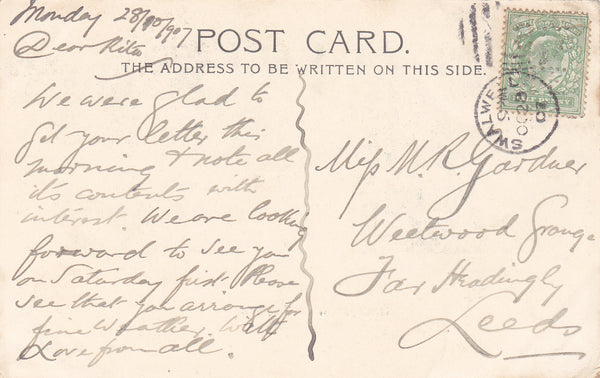 Monday 28/10/907
Dear Rita
POST CARD.
THE ADDRESS TO BE WRITTEN ON THIS SIDE.
We were glad to
get your letter this
morning & note all
it's contents with
interest. We are looking
forward to see you
on Saturday first. Please
see that you arrange for
fine Weather. With
Love from all.
Miss M. R. Gardner
Weetwood Grange
Far Headingly
Leeds
SWALWE
OC 28
07